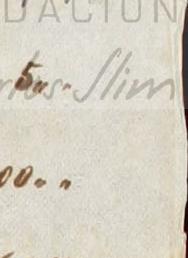 DACIÓN
5„ „
rlos Slim
00„ „